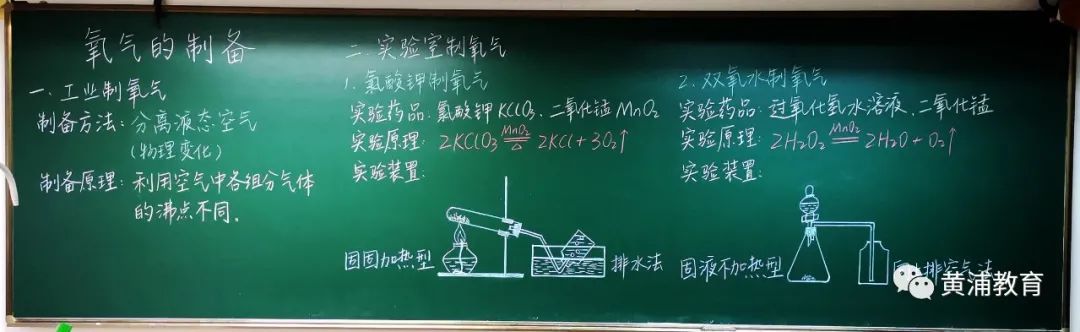 氧气的制备
一.工业制氧气
制备方法:分离液态空气
(物理变化)
制备原理:利用空气中各组分气体
的沸点不同.
二.实验室制氧气
1.氯酸钾制氧气
实验药品:氯酸钾KClO₃、二氧化锰MnO₂
实验原理:2KClO₃ MnO₂ △ 2KCl+3O₂↑
实验装置:
固固加热型
排水法
2.双氧水制氧气
实验药品:过氧化氢水溶液、二氧化锰
实验原理:2H₂O₂ MnO₂ 2H₂O+O₂↑
实验装置:
固液不加热型
排空气法
黄浦教育